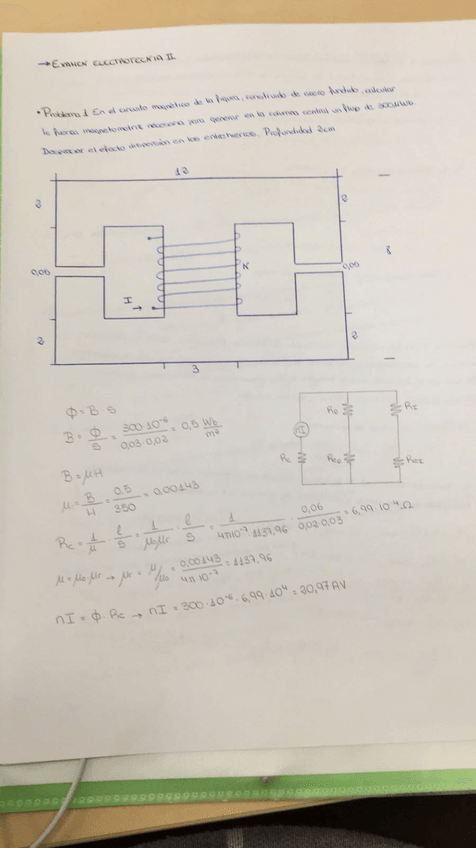 → EXAMEN ELECTROTECNIA II
• Problema 1 En el circuito magnético de la figura, construido de acero fundido, calcular
la fuerza magnetomotriz necesaria para generar en la columna central un flujo de 300μWb.
Despreciar el efecto dispersión en los entrehierros. Profundidad 2cm
12
2
2
0,06
I
→
N
0,06
8
2
2
3
Φ = B · S
B = Φ/S = 300·10⁻⁶/0,03·0,02 = 0,5 Wb/m²
B = μH
μ = B/H = 0,5/350 = 0.00143
Rc = 1/μ · l/S = 1/μ₀μr · l/S = 1/4π10⁻⁷·1137,96 · 0,06/0,02·0,03 = 6,99·10⁻⁴ Ω
μ = μ₀ μr → μr = μ/μ₀ = 0,00143/4π 10⁻⁷ = 1137,96
nI = Φ · Rc → nI = 300·10⁻⁶ · 6,99·10⁴ = 20,97 AV
nI
Rc